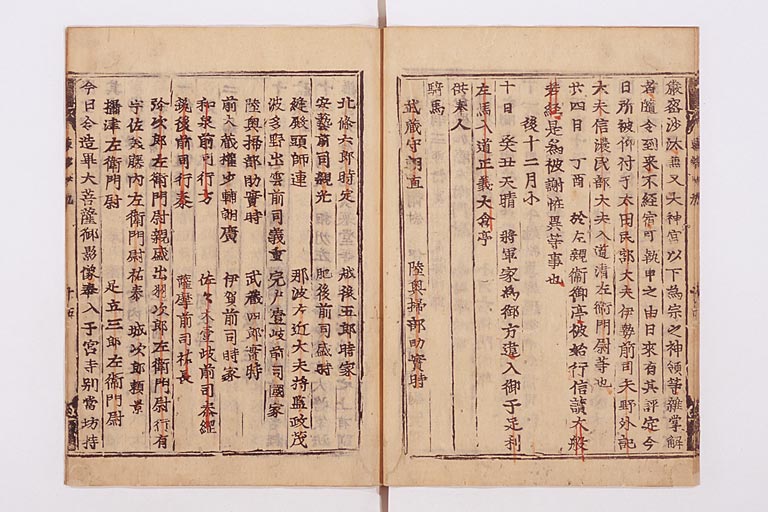 嚴密沙汰無又大神宮以下為宗之神領等雜掌解
若隨令到來不經宿可執申之由日來有其評定今
日所被仰付于太田民部大夫伊勢前司矢野外記
大夫信濃民部大夫入道清左衛門尉等也
廿四日丁酉於左親衛御亭被始行信讀大般
若經是為被謝恠異等事也
後十二月小
十日癸丑天晴將軍家為御方違入御于足利
左馬入道正義大倉亭
供奉人
騎馬
武藏守朝直 陸奧掃部助實時
北條六郎時定 越後五郎時家
安藝前司親光 肥後前司盛時
縫殿頭師連 那波左近大夫將監政茂
波多野出雲前司義重 完戶壹岐前司國家
陸奧掃部助實時 武藏四郎實時
前大藏權少輔朝廣 伊賀前司時家
和泉前司行方 佐々木壹岐前司泰綱
筑後前司行泰 薩摩前司祐長
弥次郎左衛門尉親盛 出羽次郎左衛門尉行有
宇佐美藤內左衛門尉祐泰 城次郎賴景
攝津左衛門尉 足立三郎左衛門尉
今日令造畢大菩薩御影像奉入于宮寺別當坊持